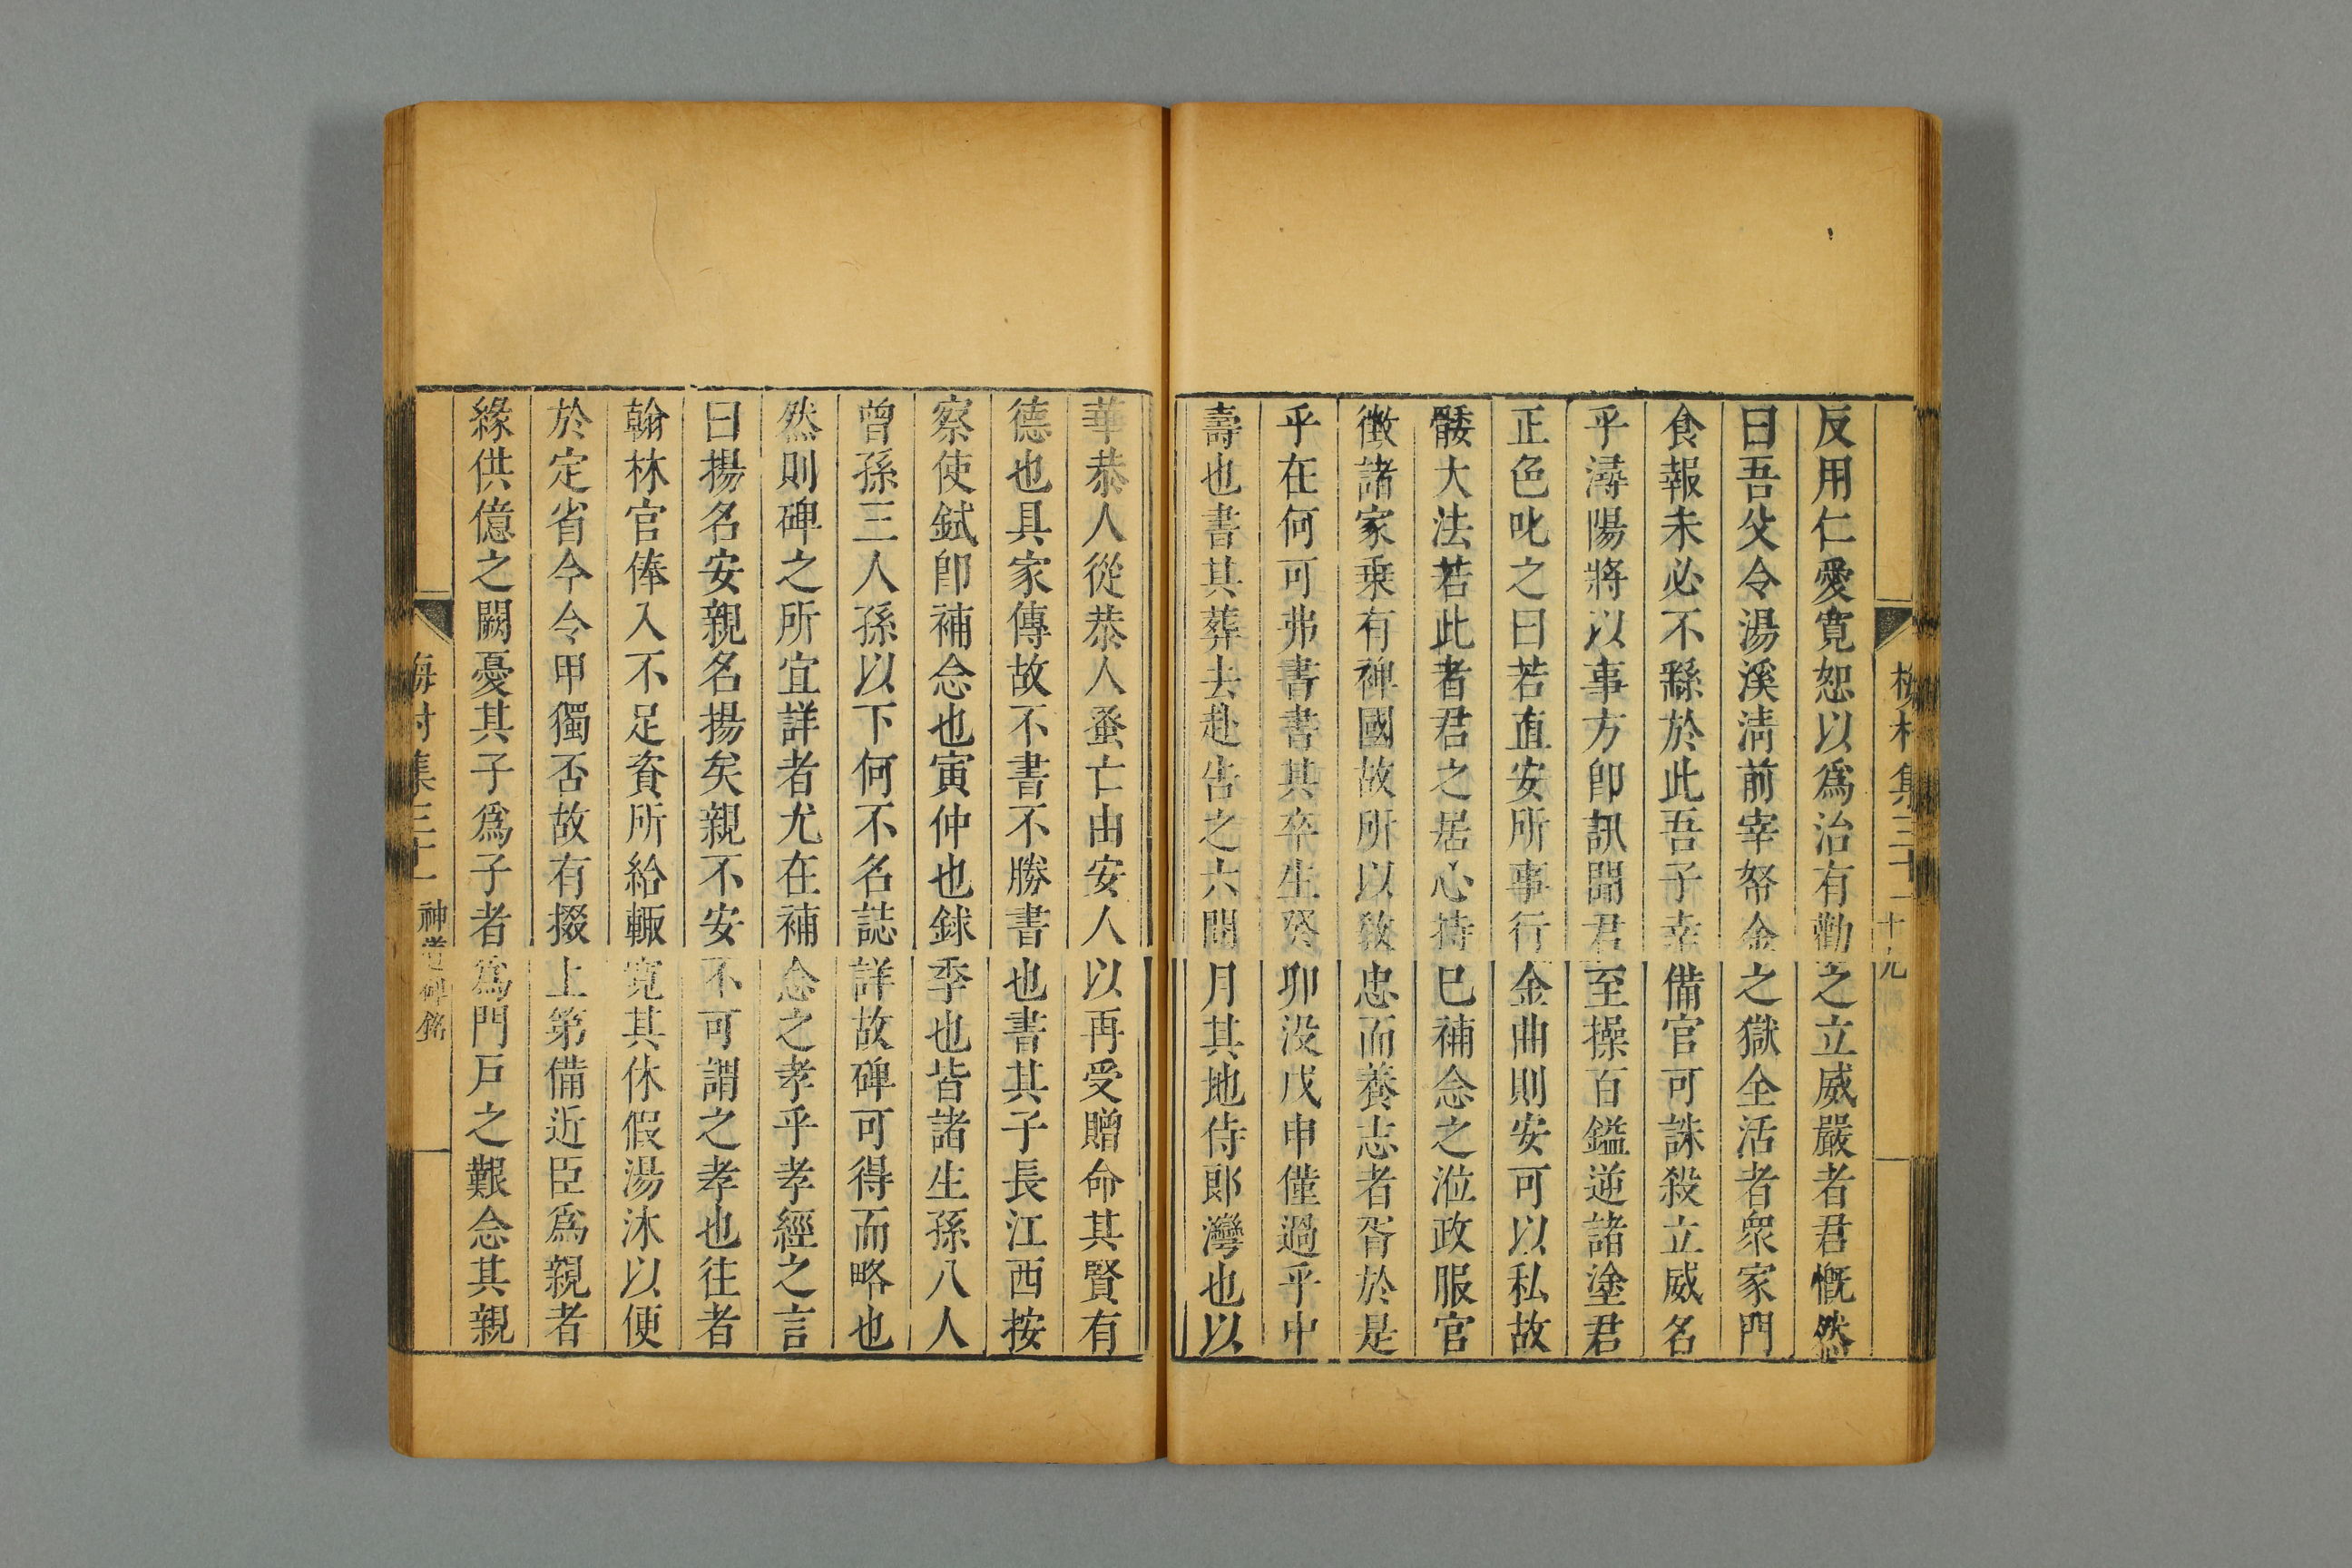 梅村集三十一 十九
反用仁愛寬恕以爲治有勸之立威嚴者君慨然
曰吾父令湯溪淸前宰帑金之獄全活者衆家門
食報未必不繇於此吾子幸備官可誅殺立威名
乎潯陽將以事方卽訊聞君至操百鎰逆諸塗君
正色叱之曰若直安所事行金曲則安可以私故
骫大法若此者君之居心持巳補念之涖政服官
徵諸家乗有裨國故所以敎忠而養志者胥於是
乎在何可弗書書其卒生癸卯没戊申僅過乎中
壽也書其葬去赴告之六閏月其地侍郞灣也以
華恭人從恭人蚤亡由安人以再受贈命其賢有
德也具家傳故不書不勝書也書其子長江西按
察使鉽卽補念也寅仲也銶季也皆諸生孫八人
曾孫三人孫以下何不名誌詳故碑可得而略也
然則碑之所宜詳者尤在補念之孝乎孝經之言
曰揚名安親名揚矣親不安不可謂之孝也往者
翰林官俸入不足資所給輙寬其休假湯沐以便
於定省今令甲獨否故有掇上第備近臣爲親者
緣供億之闕憂其子爲子者爲門戸之艱念其親
梅村集三十一 神道碑銘